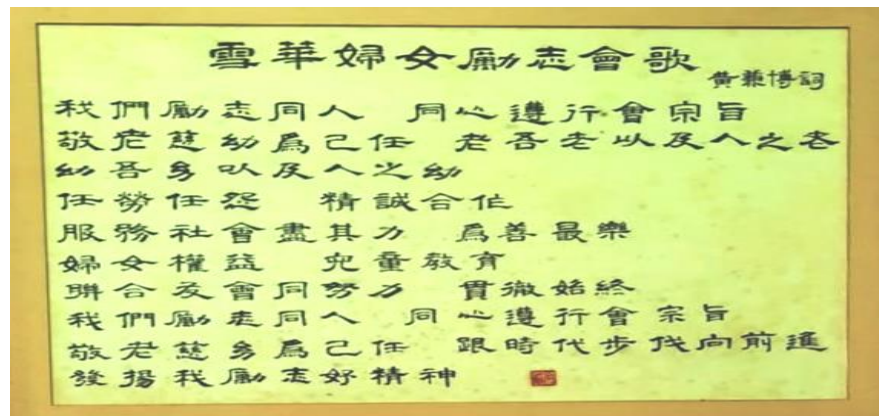 雪華婦女勵志會歌
黃兼博詞
我們勵志同人 同心遵行會宗旨
敬老慈幼為己任 老吾老以及人之老
幼吾幼以及人之幼
任勞任怨 精誠合作
服務社會盡其力 為善最樂
婦女權益 兒童教育
聯合友會同努力 貫徹始終
我們勵志同人 同心遵行會宗旨
敬老慈幼為己任 跟時代步伐向前進
發揚我勵志好精神